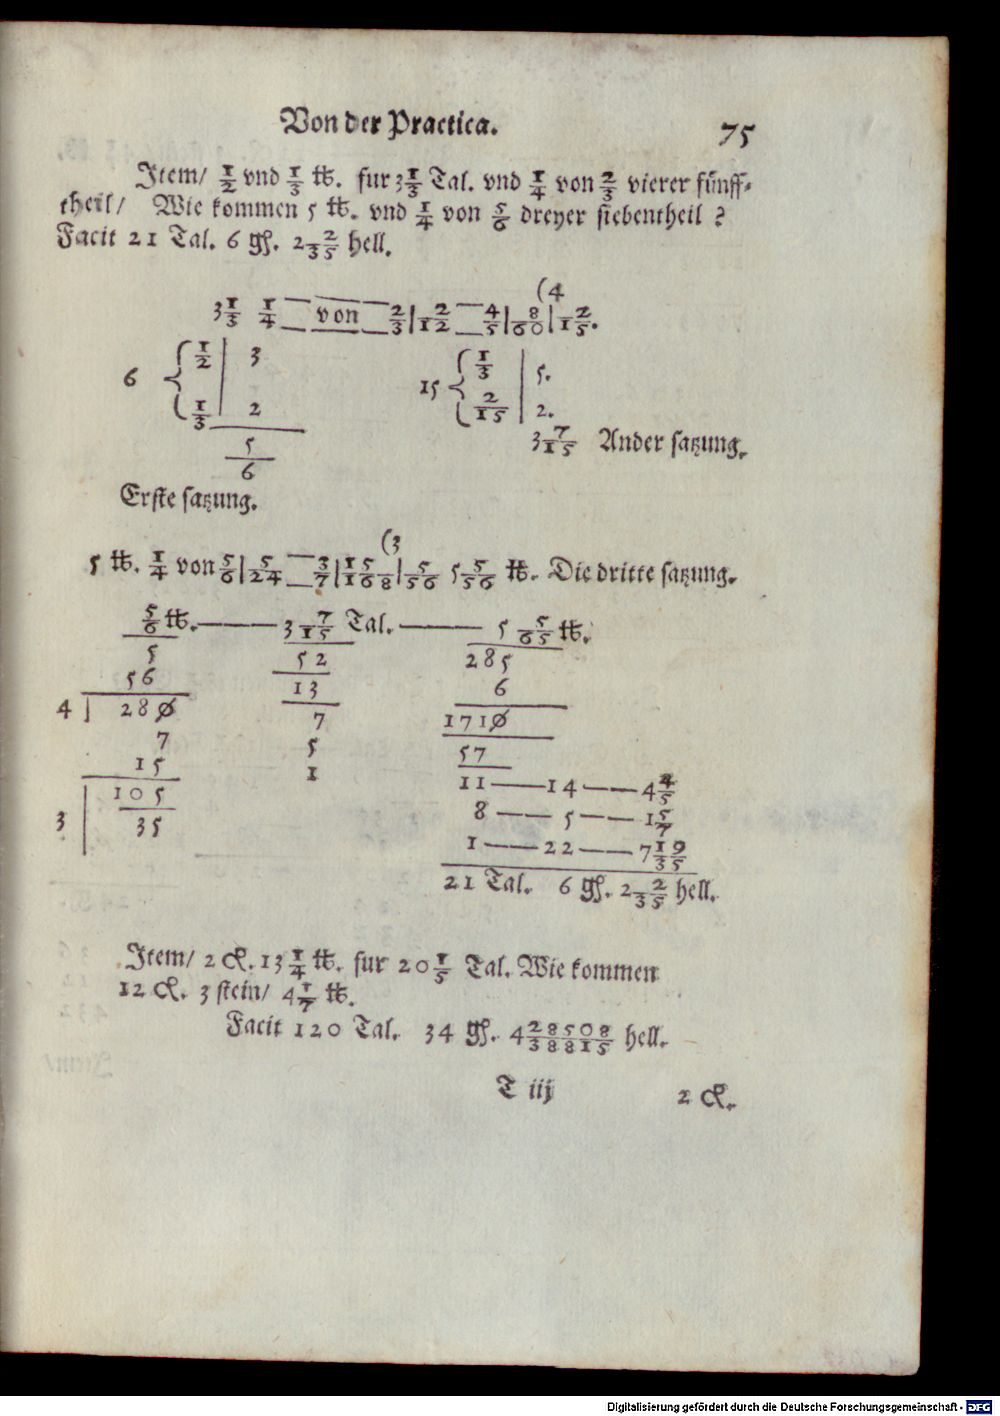 Von der Practica. 75
Item/ 1/2 vnd 1/3 ℔. fur 3 1/3 Tal. vnd 1/4 von 2/3 vierer fünff-
theil/ Wie kommen 5 ℔. vnd 1/4 von 5/6 dreyer siebentheil ?
Facit 21 Tal. 6 gß. 2 2/35 hell.
(4
3 1/3 1/4 von 2/3 | 2/12 4/5 | 8/60 | 2/15.
1/2 | 3 1/3 | 5.
6 15
1/3 | 2 2/15 | 2.
5/6 3 7/15 Ander satzung.
Erste satzung.
(3
5 ℔. 1/4 von 5/6 | 5/24 3/7 | 15/168 | 5/56 5 5/56 ℔. Die dritte satzung.
5/6 ℔. —— 3 7/15 Tal. —— 5 5/65 ℔.
5 52 285
56 13 6
4 | 280 7 1710
7 5 57
15 1 11 — 14 — 4 4/5
105 8 — 5 — 1 5/7
3 | 35 1 — 22 — 7 19/35
21 Tal. 6 gß. 2 2/35 hell.
Item/ 2 C. 13 1/4 ℔. fur 20 1/5 Tal. Wie kommen
12 C. 3 stein/ 4 1/7 ℔.
Facit 120 Tal. 34 gß. 4 28508/38815 hell.
T iij 2 C.
Digitalisierung gefördert durch die Deutsche Forschungsgemeinschaft - DFG